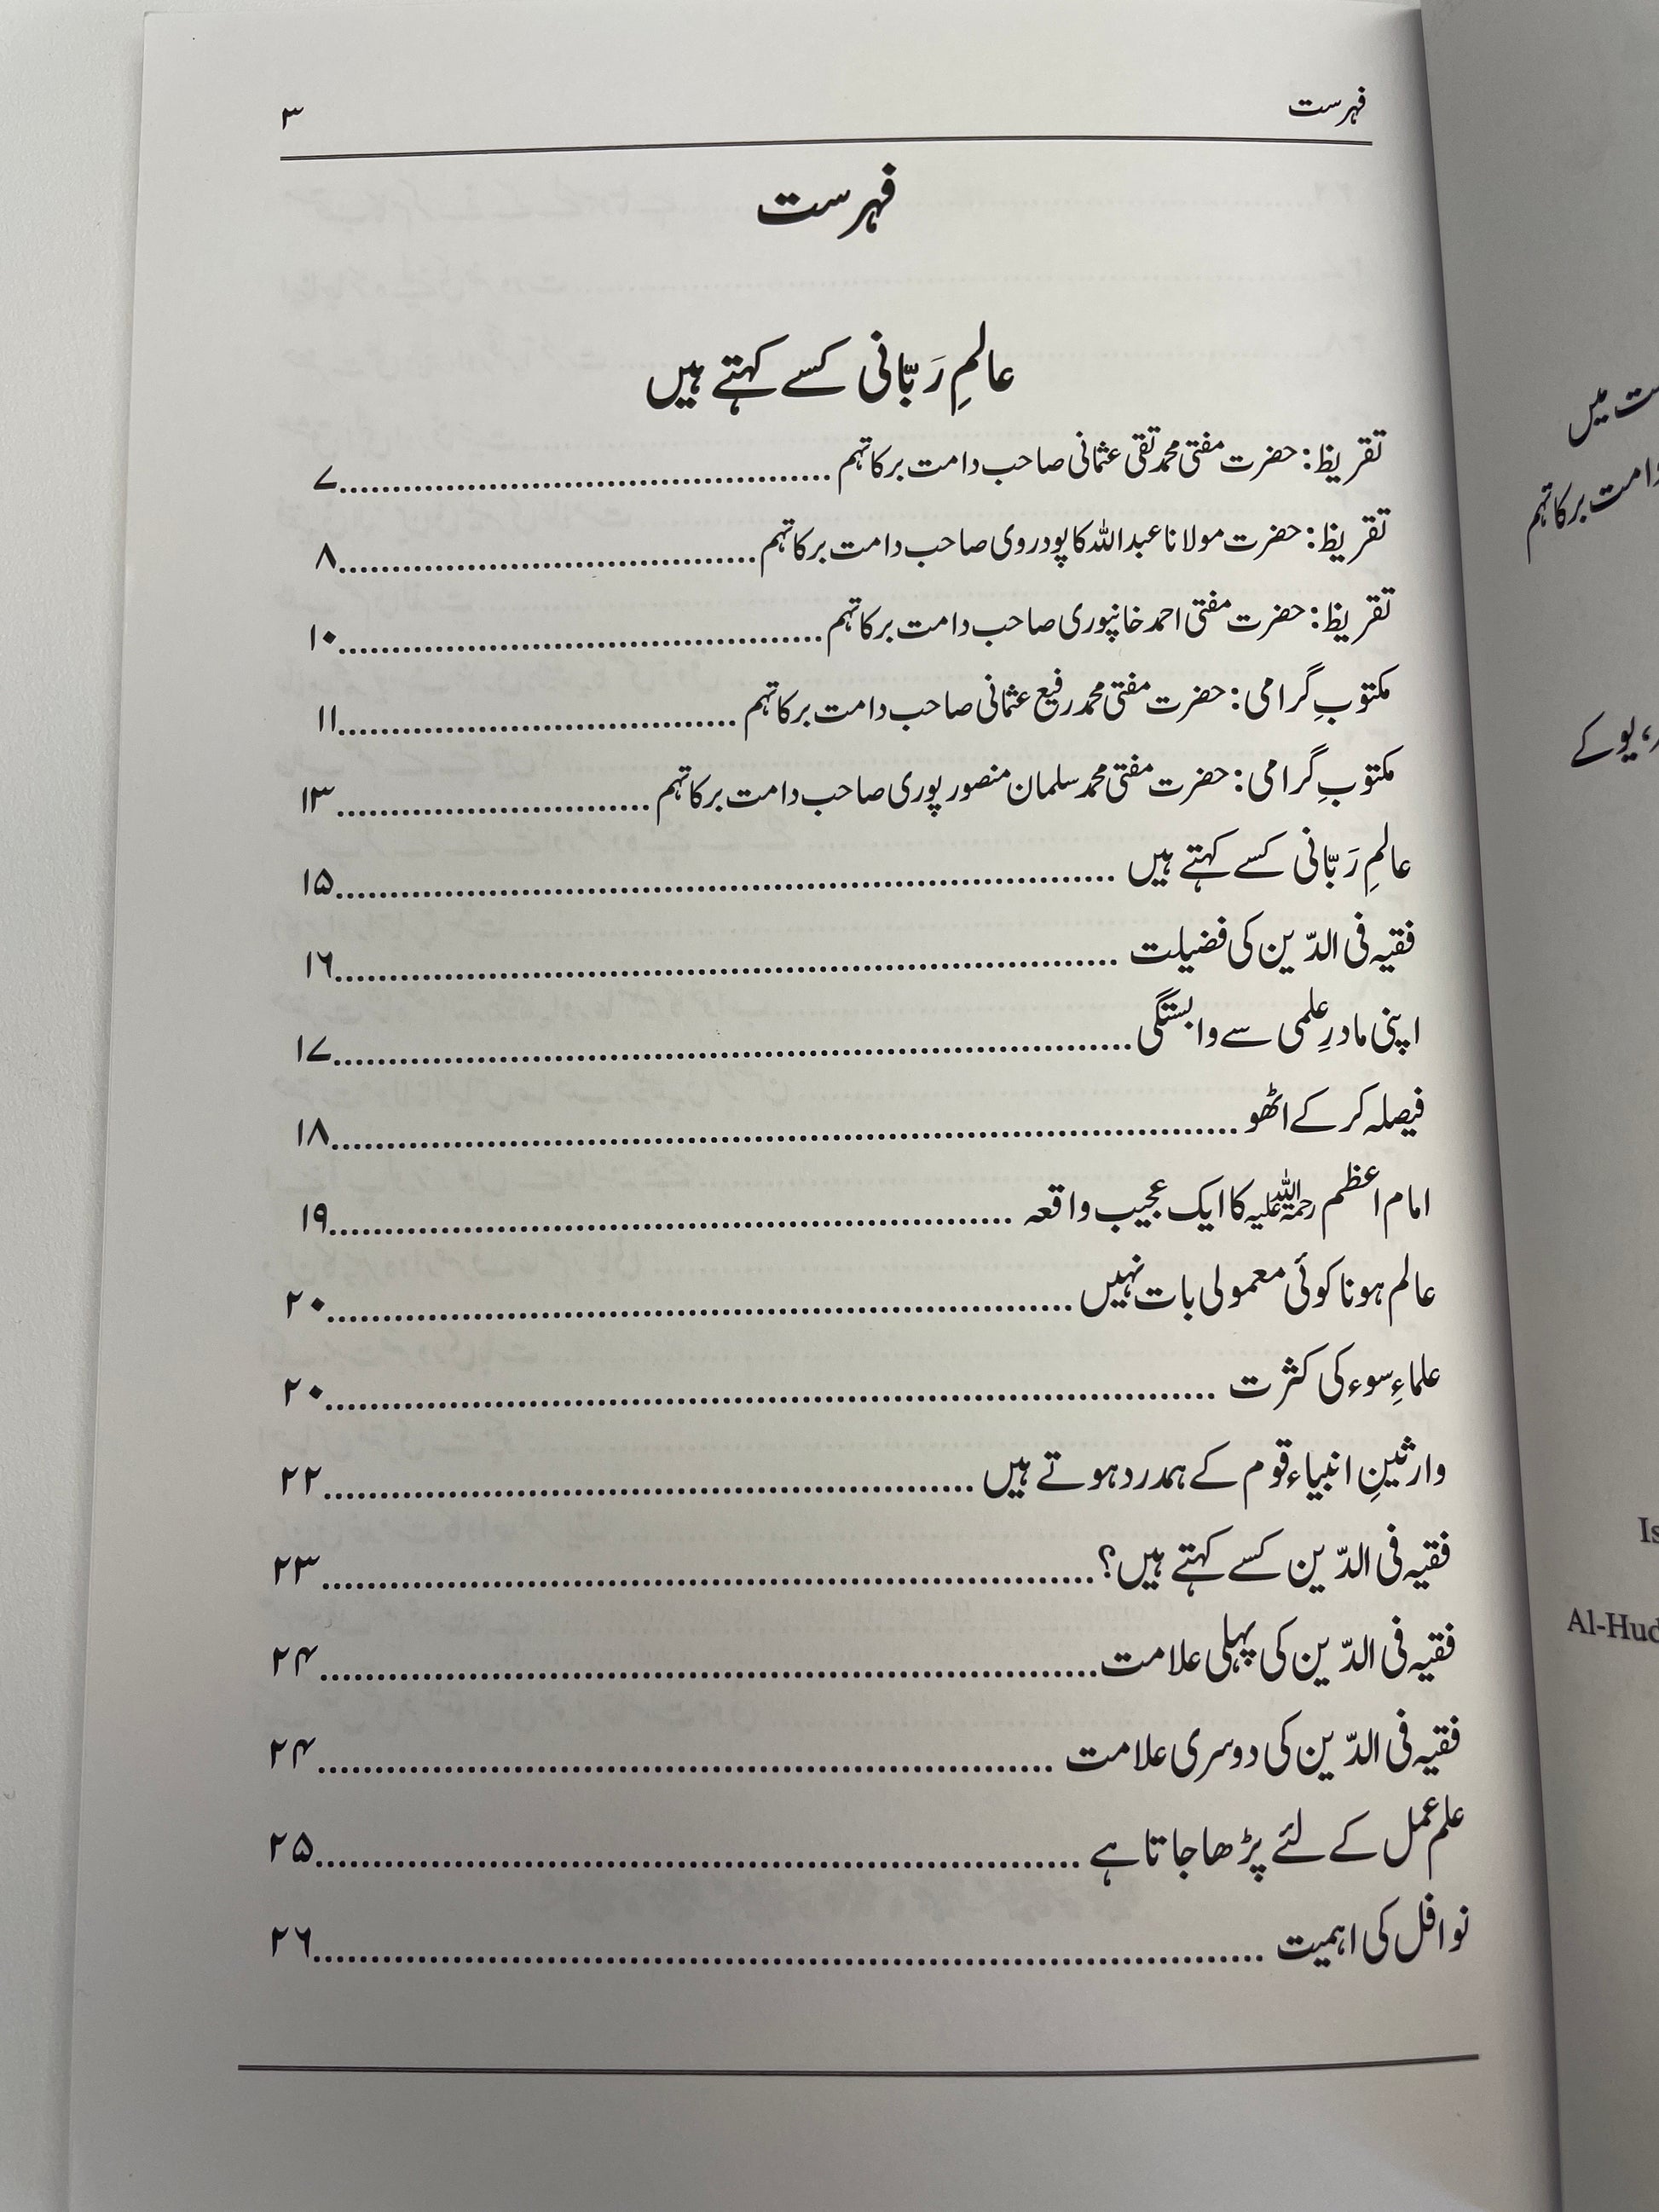 فہرست ۳
فہرست
عالمِ رَبّانی کسے کہتے ہیں
تقریظ: حضرت مفتی محمد تقی عثمانی صاحب دامت برکاتہم ........ ۷
تقریظ: حضرت مولانا عبد اللہ کاپودروی صاحب دامت برکاتہم ........ ۸
تقریظ: حضرت مفتی احمد خانپوری صاحب دامت برکاتہم ........ ۱۰
مکتوبِ گرامی: حضرت مفتی محمد رفیع عثمانی صاحب دامت برکاتہم ........ ۱۱
مکتوبِ گرامی: حضرت مفتی محمد سلمان منصور پوری صاحب دامت برکاتہم ........ ۱۳
عالمِ رَبّانی کسے کہتے ہیں ........ ۱۵
فقیہ فی الدّین کی فضیلت ........ ۱۶
اپنی مادرِ علمی سے وابستگی ........ ۱۷
فیصلہ کر کے اٹھو ........ ۱۸
امام اعظم رحمۃ اللہ علیہ کا ایک عجیب واقعہ ........ ۱۹
عالم ہونا کوئی معمولی بات نہیں ........ ۲۰
علماءِ سوء کی کثرت ........ ۲۰
وارثینِ انبیاء قوم کے ہمدرد ہوتے ہیں ........ ۲۲
فقیہ فی الدّین کسے کہتے ہیں؟ ........ ۲۳
فقیہ فی الدّین کی پہلی علامت ........ ۲۴
فقیہ فی الدّین کی دوسری علامت ........ ۲۴
علم عمل کے لئے پڑھا جاتا ہے ........ ۲۵
نوافل کی اہمیت ........ ۲۶
میں
دامت برکاتہم
، یو کے